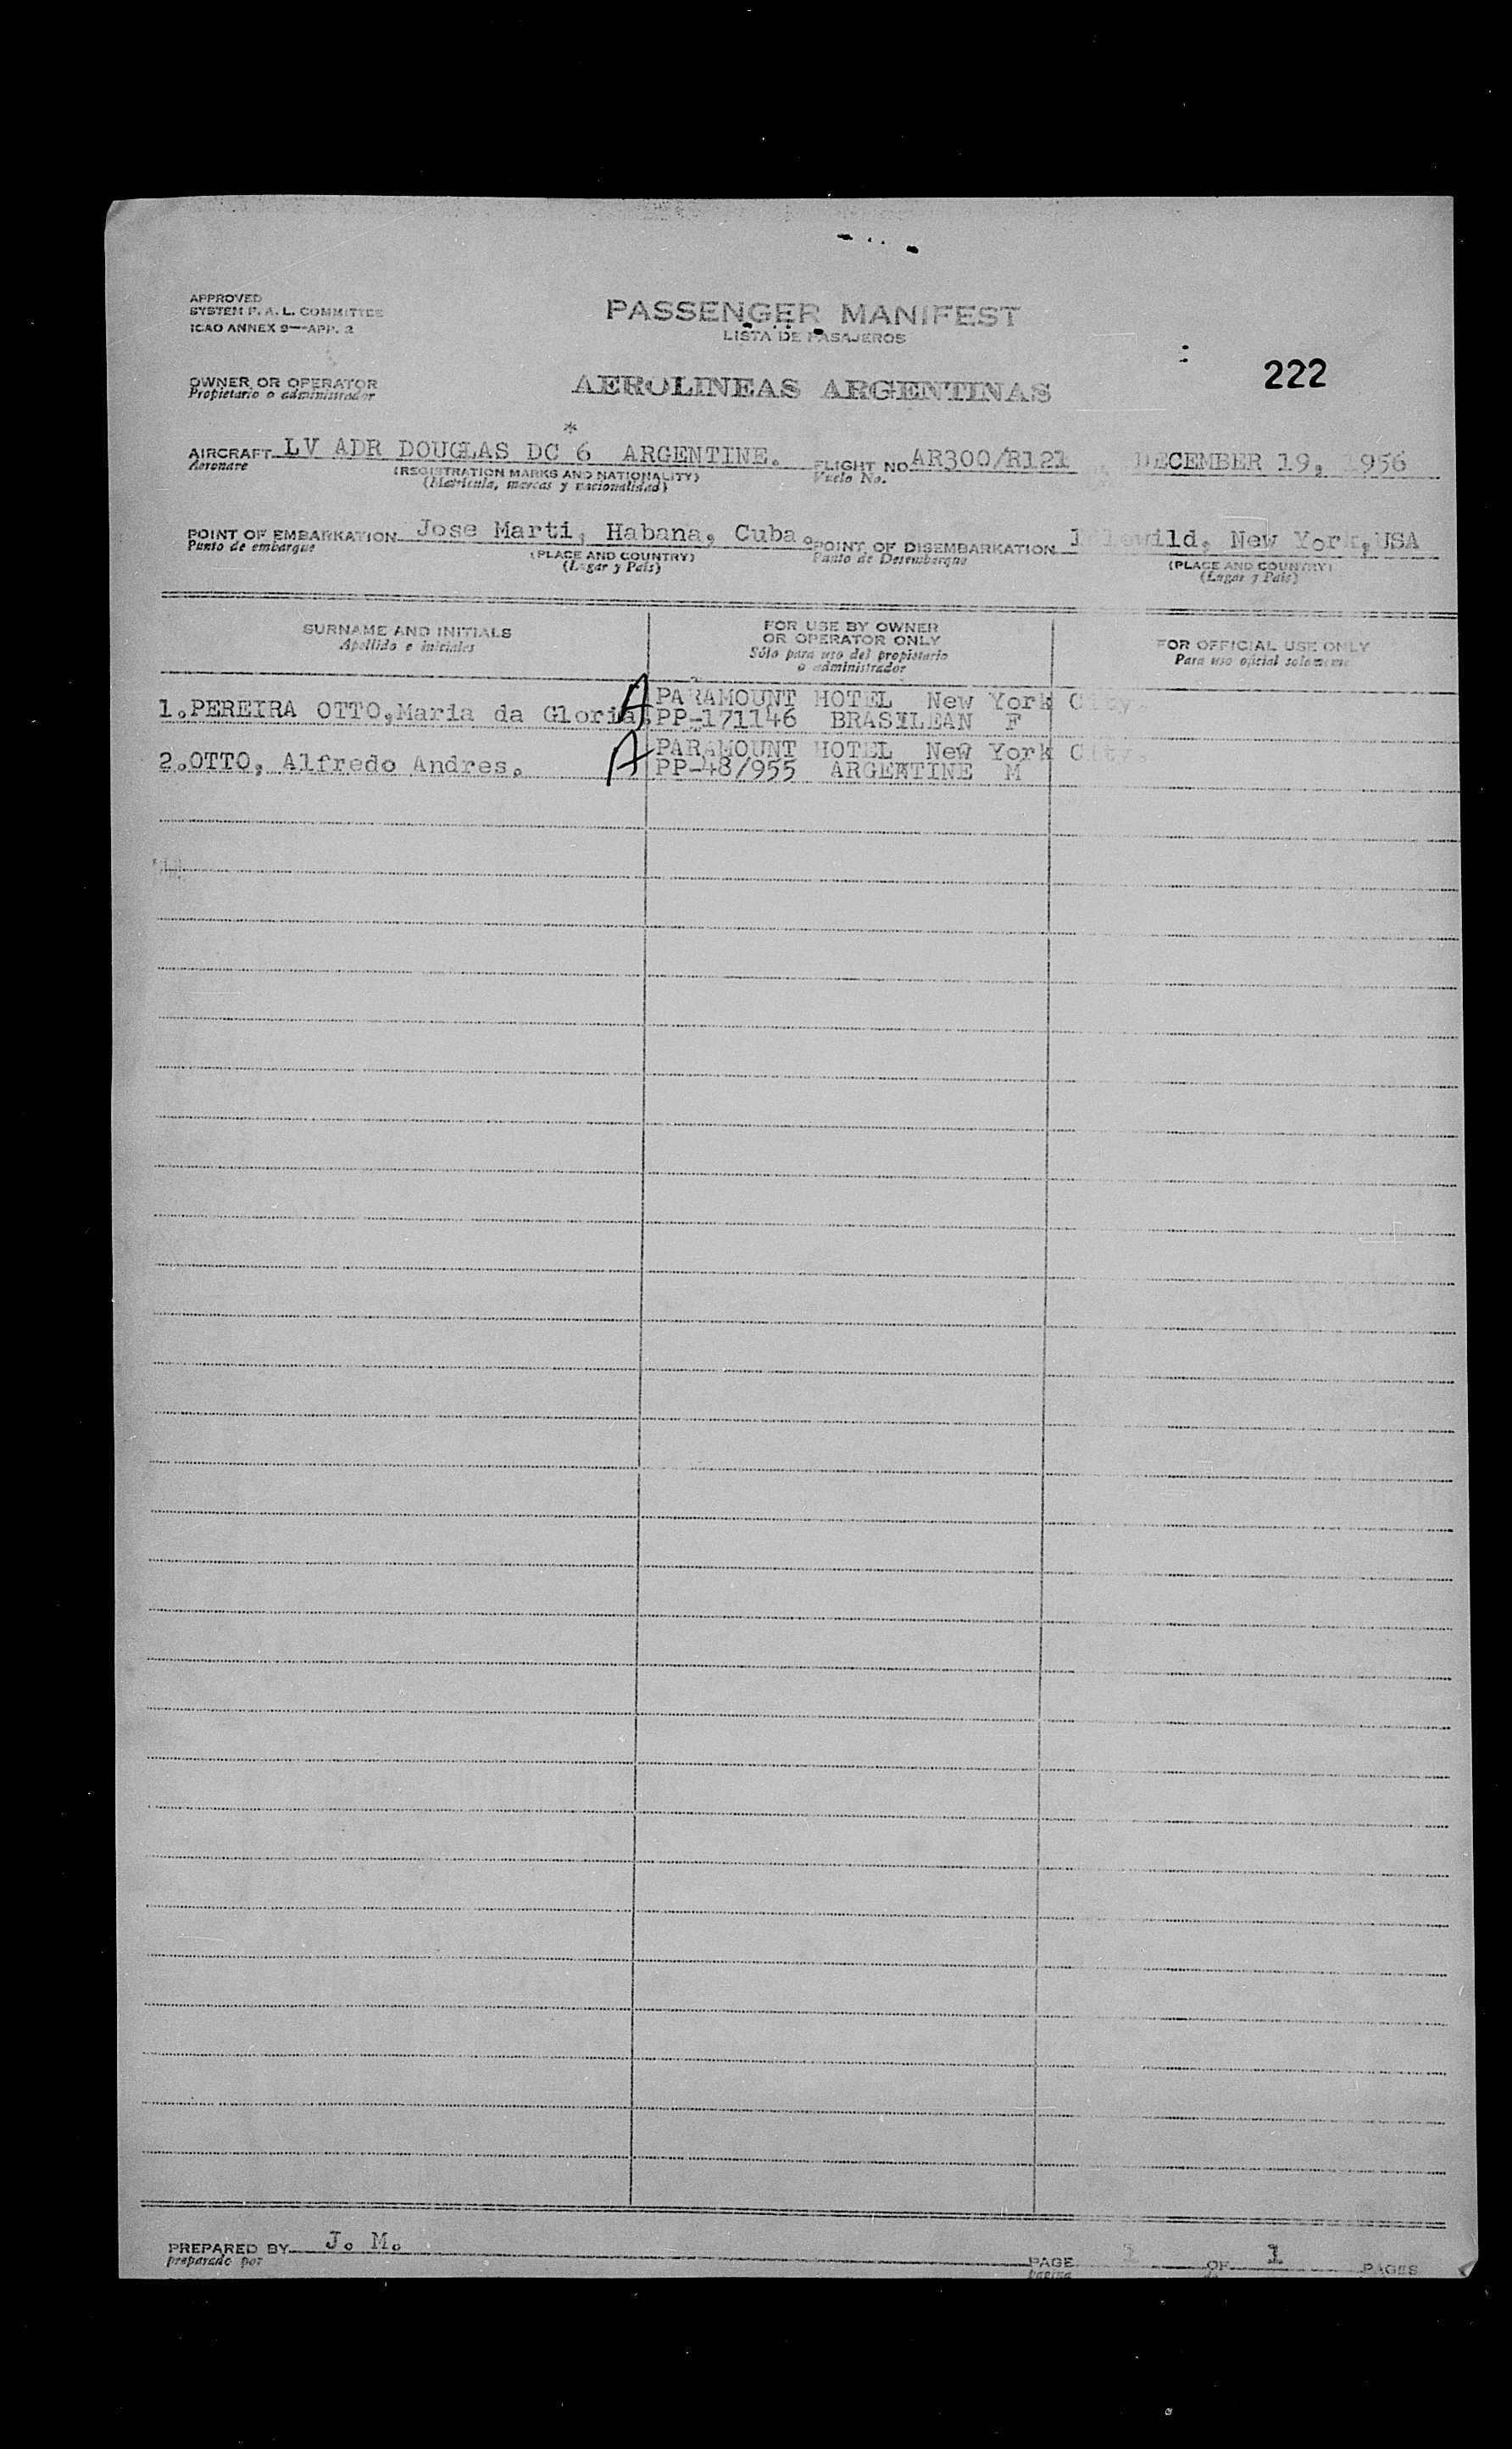 APPROVED
SYSTEM F. A. L. COMMITTEE
ICAO ANNEX 9—APP. 2
PASSENGER MANIFEST
LISTA DE PASAJEROS
222
OWNER OR OPERATOR
Propietario o administrador
AEROLINEAS ARGENTINAS
*
AIRCRAFT LV ADR DOUGLAS DC 6 ARGENTINE. FLIGHT NO AR300/R121 DECEMBER 19, 1956
Aeronave (REGISTRATION MARKS AND NATIONALITY) Vuelo No.
(Matricula, marcas y nacionalidad)
POINT OF EMBARKATION Jose Marti, Habana, Cuba. POINT OF DISEMBARKATION Idlewild, New York, USA
Punto de embarque (PLACE AND COUNTRY) Punto de Desembarque (PLACE AND COUNTRY)
(Lugar y Pais) (Lugar y Pais)
SURNAME AND INITIALS
Apellido e iniciales
FOR USE BY OWNER
OR OPERATOR ONLY
Sólo para uso del propietario
o administrador
FOR OFFICIAL USE ONLY
Para uso oficial solamente
A PARAMOUNT HOTEL New York City.
1.PEREIRA OTTO,Maria da Gloria. PP-171146 BRASILEAN F
A PARAMOUNT HOTEL New York City.
2.OTTO, Alfredo Andres. PP-48/955 ARGENTINE M
PREPARED BY J. M.
preparado por
PAGE 1 OF 1 PAGES
pagina